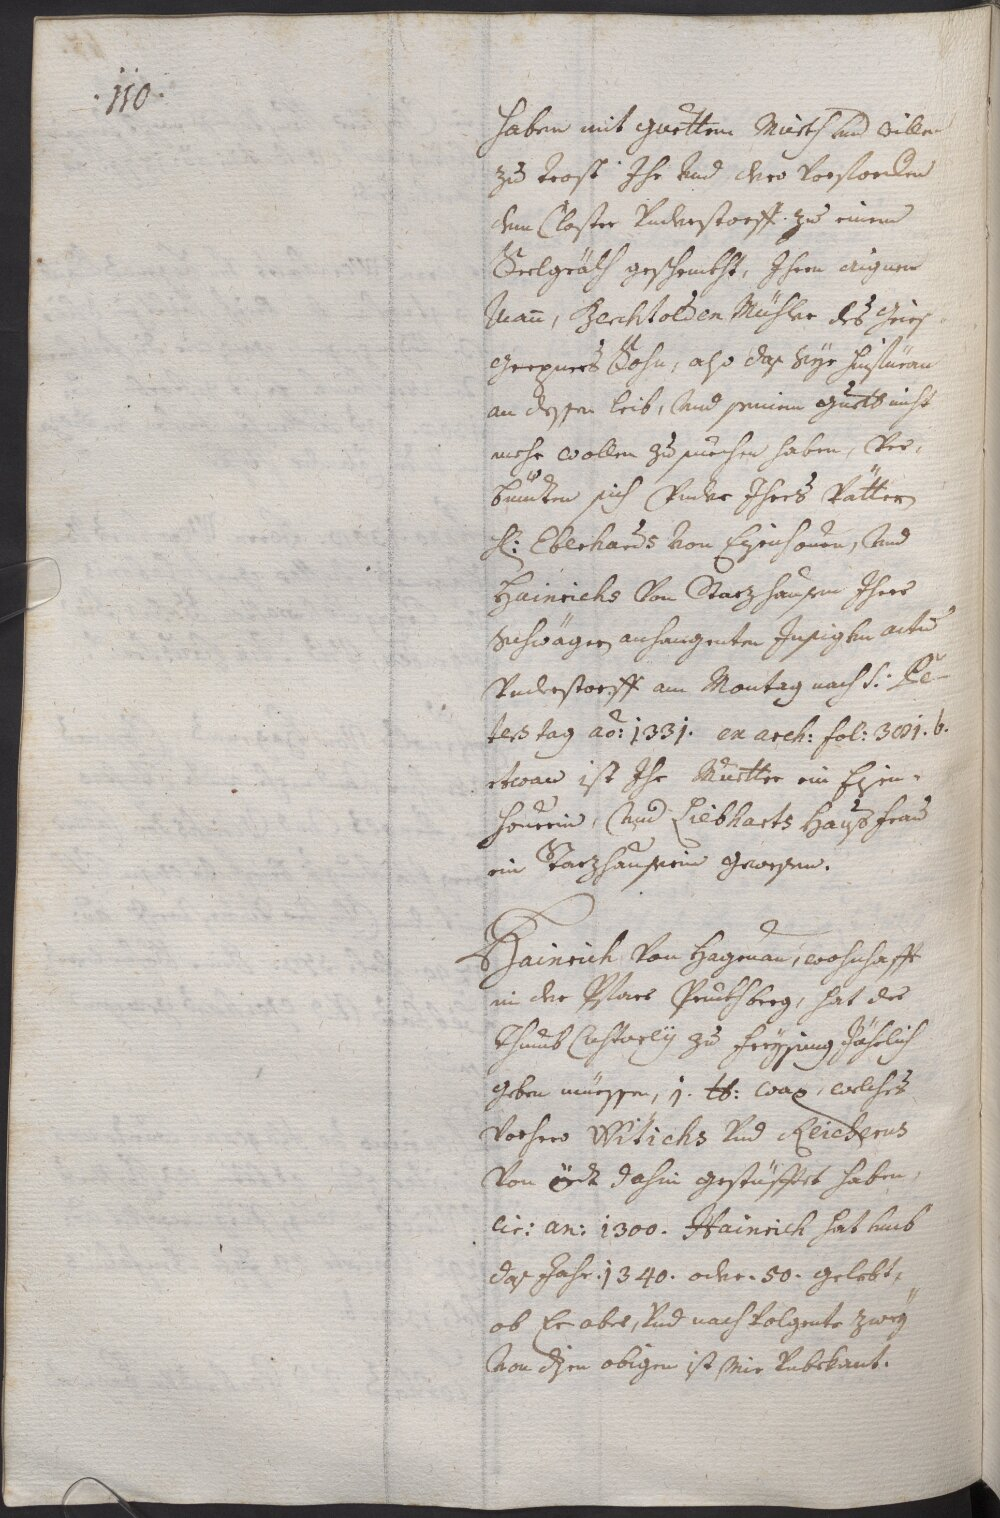 .110.
haben mit guettem Mueth vnd willen
zu trost Ihr vnd dero Vorfordern
dem Closter Vnderstorff zu einem
Seelgräth geschenckht, Ihren aignen
Mann, Berchtolden Mühler des
Sohn, also das Sye hinfüran
an dessen leib, vnd seinem guett nicht
mehr wollen zu suechen haben, Ver-
bundten sich vnder Ihres Vätters
sl: Eberhards von Eisenhouen, vnd
Hainrichs von Starzhausen Ihres
Schwägers anhangenten Insiglen actu
Vnderstorff am Montag nach S: Pe-
ters tag aō: 1331. ex arch: fol: 3081. b.
etwan ist Ihr Muetter ein Eisen-
houerin, vnd Liebharts Haußfrau
ein Starzhauserin gewesen.
Hainrich von Hagenau, wohnhafft
in der Pfarr hat der
Thumb Custorey zu Freysing Jährlich
geben müessen, 1. lb: wax, welches
vorhero Witichs vnd Reicherus
von Ödt dahin gestüfftet haben,
cir: an: 1300. Hainrich hat vmb
das Jahr 1340. oder 50. gelebt,
ob Er aber, vnd nach volgente zwey
von disen obigen ist mir vnbekant.